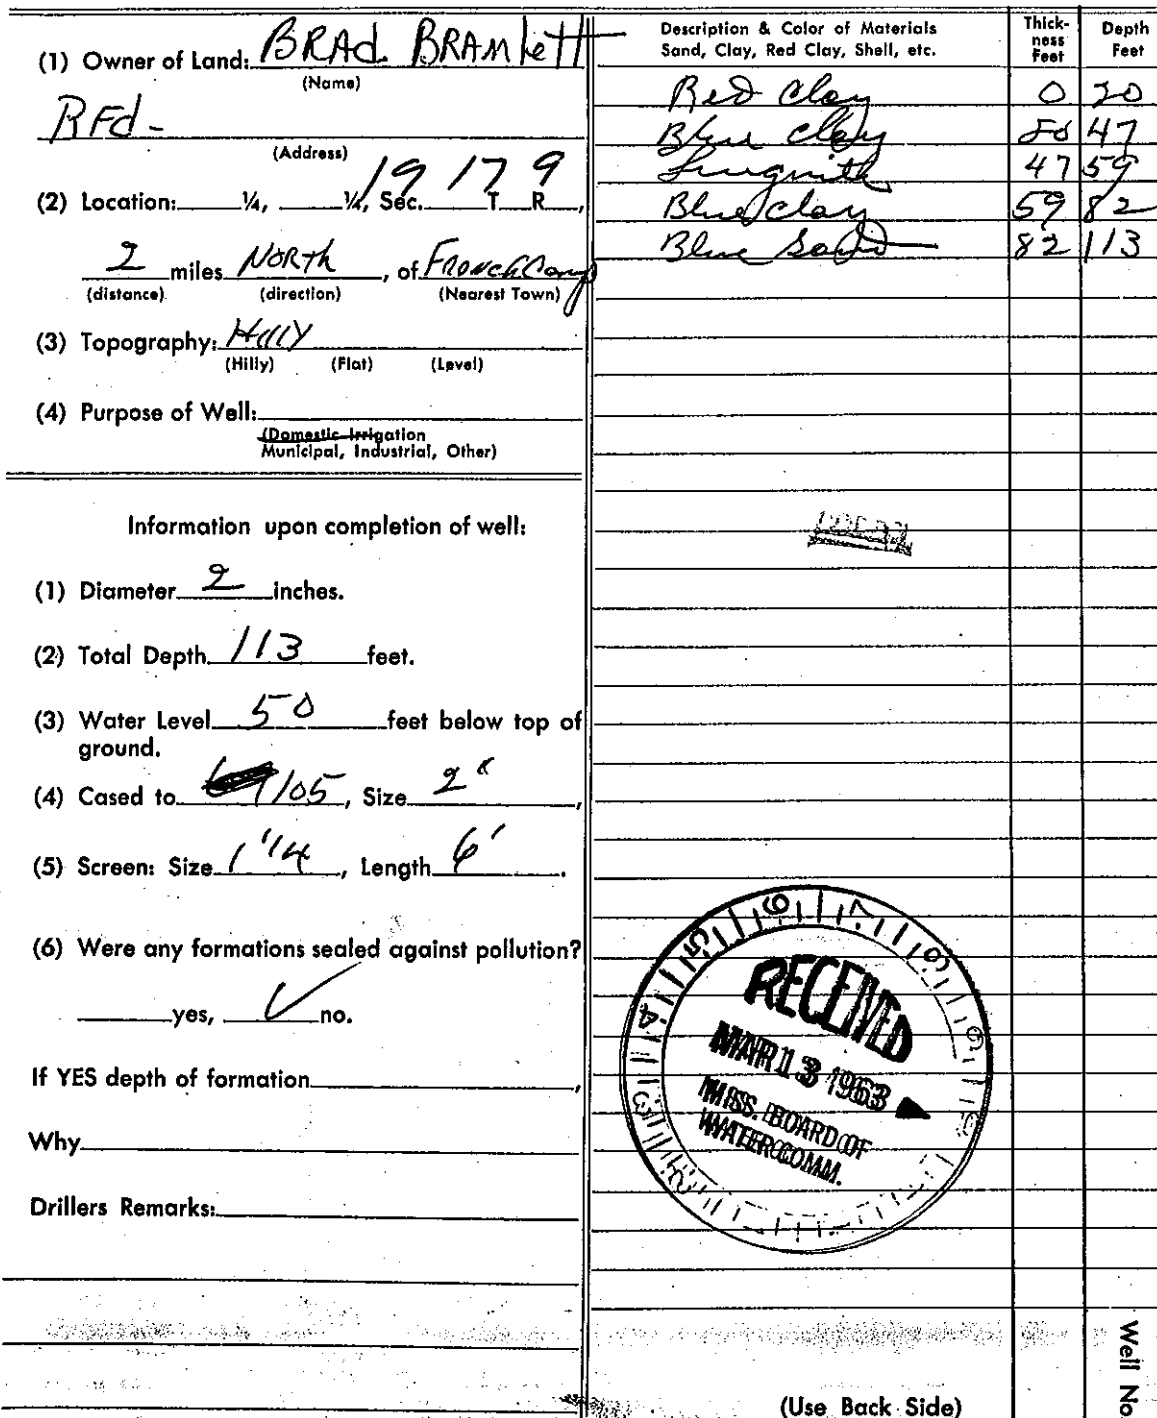 (1) Owner of Land: BRAd BRAMlett
(Name)
RFd-
(Address)
(2) Location: ¼, ¼, Sec. 19 T 17 R 9,
2 miles NORTH, of French Camp
(distance) (direction) (Nearest Town)
(3) Topography: Hilly
(Hilly) (Flat) (Level)
(4) Purpose of Well:
(Domestic-Irrigation
Municipal, Industrial, Other)
Information upon completion of well:
(1) Diameter 2 inches.
(2) Total Depth 113 feet.
(3) Water Level 50 feet below top of
ground.
(4) Cased to 105, Size 2",
(5) Screen: Size 1 1/4, Length 6'.
(6) Were any formations sealed against pollution?
yes, ✓ no.
If YES depth of formation,
Why
Drillers Remarks:
Description & Color of Materials
Sand, Clay, Red Clay, Shell, etc.
Thick-
ness
Feet
Depth
Feet
Red Clay 0 20
Blue Clay 20 47
Lingnith 47 59
Blue Clay 59 82
Blue Sand 82 113
RECEIVED
MAR 13 1963
MISS. BOARD OF
WATER COMM.
Well No
(Use Back Side)